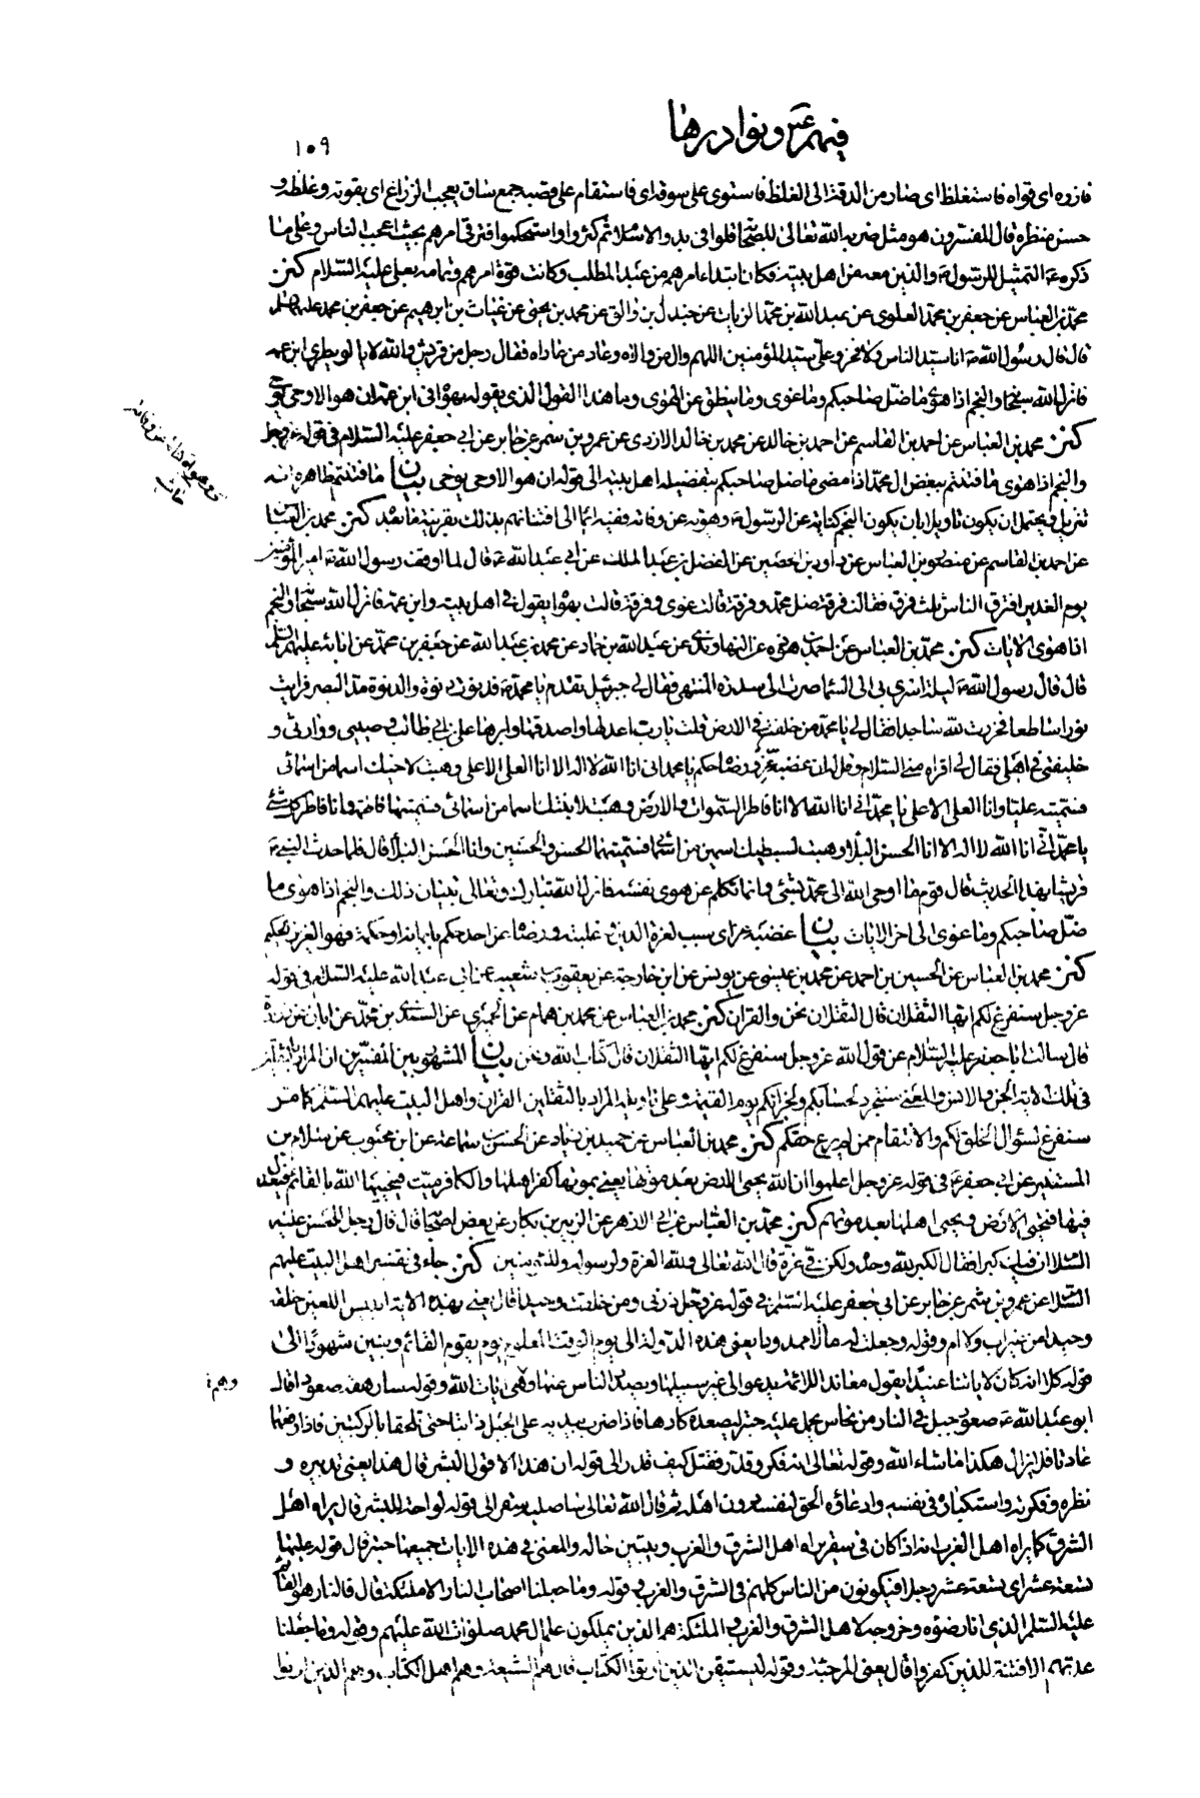 فيهم عۤ ونوادرها
١٠٩
فازره اى قواه فاستغلظ اى صار من الدقة الى الغلظ فاستوى على سوقه اى فاستقام على قصبه جمع ساق يعجب الزراع اى بقوته وغلظه و
حسن منظره قال المفسرون هو مثل ضربه الله تعالى للصحابة قلوا فى بدو الاسلام ثم كثروا واستحكموا فترقى امرهم بحيث اعجب الناس وعلى ما
ذكره عۤ التمثيل للرسول ص والذين معه من اهل بيته فكان ابتداء امرهم من عبد المطلب وكانت قوة امرهم وتمامه بعلى عليه السلام كنز
محمد بن العباس عن جعفر بن محمد العلوى عن عبد الله بن محمد الزيات عن جندل بن والق عن محمد بن يحيى عن غياث بن ابرهيم عن جعفر بن محمد عليهما
قال قال رسول الله ص انا سيد الناس ولا فخر وعلى سيد المؤمنين اللهم وال من والاه وعاد من عاداه فقال رجل من قريش والله لا يالو يطرى ابن عمه
فانزل الله سبحانه والنجم اذا هوى ما ضل صاحبكم وما غوى وما ينطق عن الهوى وما هذا القول الذى يقوله بهواه فى ابن عمه ان هو الا وحى يوحى
كنز محمد بن العباس عن احمد بن القاسم عن احمد بن خالد عن محمد بن خالد الازدى عن عمرو بن شمر عن جابر عن ابى جعفر عليه السلام فى قوله عز وجل
والنجم اذا هوى ما فتنتم ببغض ال محمد اذا مضى ما ضل صاحبكم بتفضيله اهل بيته الى قوله ان هو الا وحى يوحى بيان ما فتنتم ظاهره انه
تنزيل ويحتمل ان يكون تاويلا بان يكون النجم كناية عن الرسول ص وهويه عن وفاته وفيه ايماء الى افتتانهم بذلك بقرينة ما بعد كنز محمد بن العباس
عن احمد بن القاسم عن منصور بن العباس عن داود بن الحصين عن الفضل بن عبد الملك عن ابى عبد الله عۤ قال لما اوقف رسول الله ص امير المؤمنين
يوم الغدير افترق الناس ثلث فرق فقالت فرقة ضل محمد وفرقة قالت غوى وفرقة قالت بهواه يقول فى اهل بيته وابن عمه فانزل الله سبحانه والنجم
اذا هوى الايات كنز محمد بن العباس عن احمد بن هوذه عن النهاوندى عن عبد الله بن حماد عن محمد بن عبد الله عن جعفر بن محمد عن ابائه عليهم السلم
قال قال رسول الله ص ليلة اسرى بى الى السماء صرت الى سدرة المنتهى فقال لى جبرئيل تقدم يا محمد فدنوت دنوة والدنوة مد البصر فرايت
نورا ساطعا فخررت لله ساجدا فقال لى يا محمد من خلفت فى الارض قلت يا رب اعدلها واصدقها وابرها على بن ابى طالب وصيى ووارثى و
خليفتى فى اهلى فقال لى اقراه منى السلام وقل له ان غضبه عز ورضاه حكم يا محمد انى انا الله لا اله الا انا العلى الاعلى وهبت لاخيك اسما من اسمائى
فسميته عليا وانا العلى الاعلى يا محمد انى انا الله لا اله الا انا فاطر السموات والارض وهبت لابنتك اسما من اسمائى فسميتها فاطمة وانا فاطر كل شئ
يا محمد انى انا الله لا اله الا انا الحسن البلاء وهبت لسبطيك اسمين من اسمائى فسميتهما الحسن والحسين وانا الحسن البلاء قال فلما حدث النبى ص
قريشا بهذا الحديث قال قوم ما اوحى الله الى محمد بشئ وانما تكلم عن هوى نفسه فانزل الله تبارك وتعالى تبيان ذلك والنجم اذا هوى ما
ضل صاحبكم وما غوى الى اخر الايات بيان غضبه عز اى سبب لعزة الدين و غلبته ورضاه عن احد حكم بايمانه او حكمة فهو العزيز الحكيم
كنز محمد بن العباس عن الحسين بن احمد عن محمد بن عيسى عن يونس عن ابن خارجة عن يعقوب بن شعيب عن ابى عبد الله عليه السلام فى قوله
عز وجل سنفرغ لكم ايها الثقلان قال الثقلان نحن والقران كنز محمد بن العباس عن محمد بن همام عن الحميرى عن السندى بن محمد عن ابان عن زرارة
قال سالت ابا جعفر عليه السلام عن قول الله عز وجل سنفرغ لكم ايها الثقلان قال كتاب الله ونحن بيان المشهور بين المفسرين ان المراد بالثقلين
فى تلك الاية الجن والانس والمعنى سنتجرد لحسابكم وجزائكم يوم القيمة وعلى تاويله المراد بالثقلين القران واهل البيت عليهم السلم كما مر
سنفرغ لسؤال الخلق لكم والانتقام ممن لم يرع حقكم كنز محمد بن العباس عن حميد بن زياد عن الحسن بن سماعة عن ابن محبوب عن سلام بن
المستنير عن ابى جعفر عۤ فى قوله عز وجل اعلموا ان الله يحيى الارض بعد موتها يعنى بموتها كفر اهلها والكافر ميت فيحييها الله بالقائم فيعدل
فيها فتحيى الارض ويحيى اهلها بعد موتهم كنز محمد بن العباس عن ابى الازهر عن الزبير بن بكار عن بعض اصحابه قال قال رجل للحسن عليه
السلام ان فيك كبرا فقال الكبر لله وحده ولكن فى عزة قال الله تعالى ولله العزة ولرسوله وللمؤمنين كنز جاء فى تفسير اهل البيت عليهم
السلام عن عمرو بن شمر عن جابر عن ابى جعفر عليه السلام فى قوله عز وجل ذرنى ومن خلقت وحيدا قال يعنى بهذه الاية ابليس اللعين خلقه
وحيدا من غير اب ولا ام وقوله وجعلت له مالا ممدودا يعنى هذه الدولة الى يوم الوقت المعلوم يوم يقوم القائم وبنين شهودا الى
قوله كلا انه كان لاياتنا عنيدا يقول معاندا للائمة يدعو الى غير سبيلها ويصد الناس عنها وهى ايات الله وقوله سارهقه صعودا قال
ابو عبد الله عۤ صعود جبل فى النار من نحاس يحمل عليه حبتر ليصعده كارها فاذا ضرب بيديه على الجبل ذابتا حتى تلحقا بالركبتين فاذا رفعهما
عادتا فلا يزال هكذا ما شاء الله وقوله تعالى انه فكر وقدر فقتل كيف قدر الى قوله ان هذا الا قول البشر قال هذا يعنى تدبيره و
نظره وفكرته واستكباره فى نفسه وادعاؤه الحق لنفسه دون اهله ثم قال الله تعالى ساصليه سقر الى قوله لواحة للبشر قال يراه اهل
الشرق كما يراه اهل الغرب انه اذا كان فى سقر يراه اهل الشرق والغرب ويتبين حاله والمعنى فى هذه الايات جميعها حبتر قال قوله عليها
تسعة عشر اى تسعة عشر رجلا فيكونون من الناس كلهم فى الشرق والغرب وقوله وما جعلنا اصحاب النار الا ملئكة قال فالنار هو القائم
عليه السلم الذى انار ضوؤه وخروجه لاهل الشرق والغرب والملئكة هم الذين يملكون علم ال محمد صلوات الله عليهم وقوله وما جعلنا
عدتهم الا فتنة للذين كفروا قال يعنى المرجئة وقوله ليستيقن الذين اوتوا الكتاب قال هم الشيعة وهم اهل الكتاب وهم الذين اوتوا